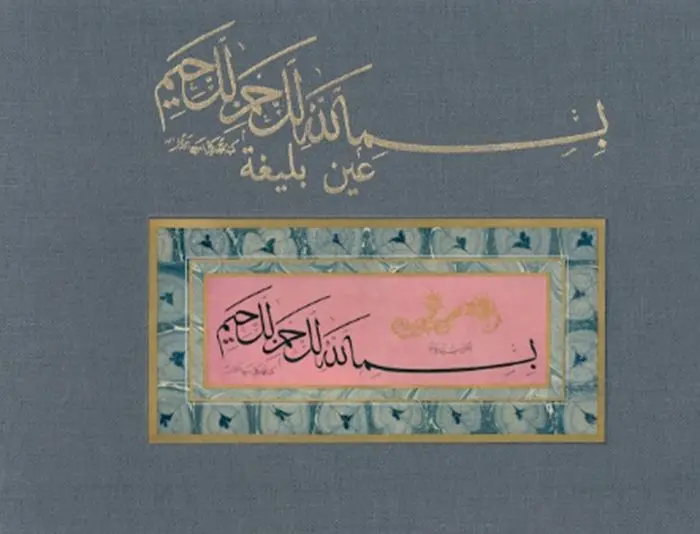 بسم الله الرحمن الرحيم
عين بليغة
بسم الله الرحمن الرحيم